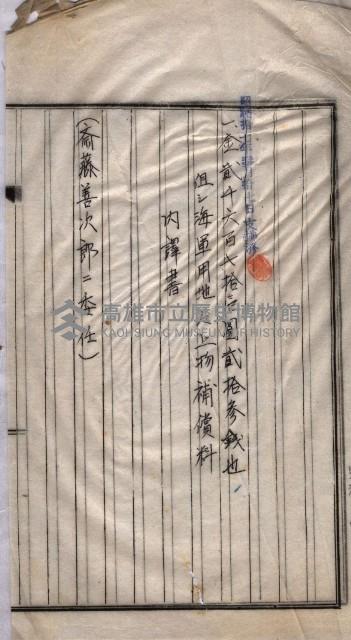 一金貳千六百七拾六圓貳拾参銭也
但シ海軍用地上物補償料
内譯書
(斎藤善次郎ニ委任)
高雄市立歷史博物館
KAOHSIUNG MUSEUM OF HISTORY